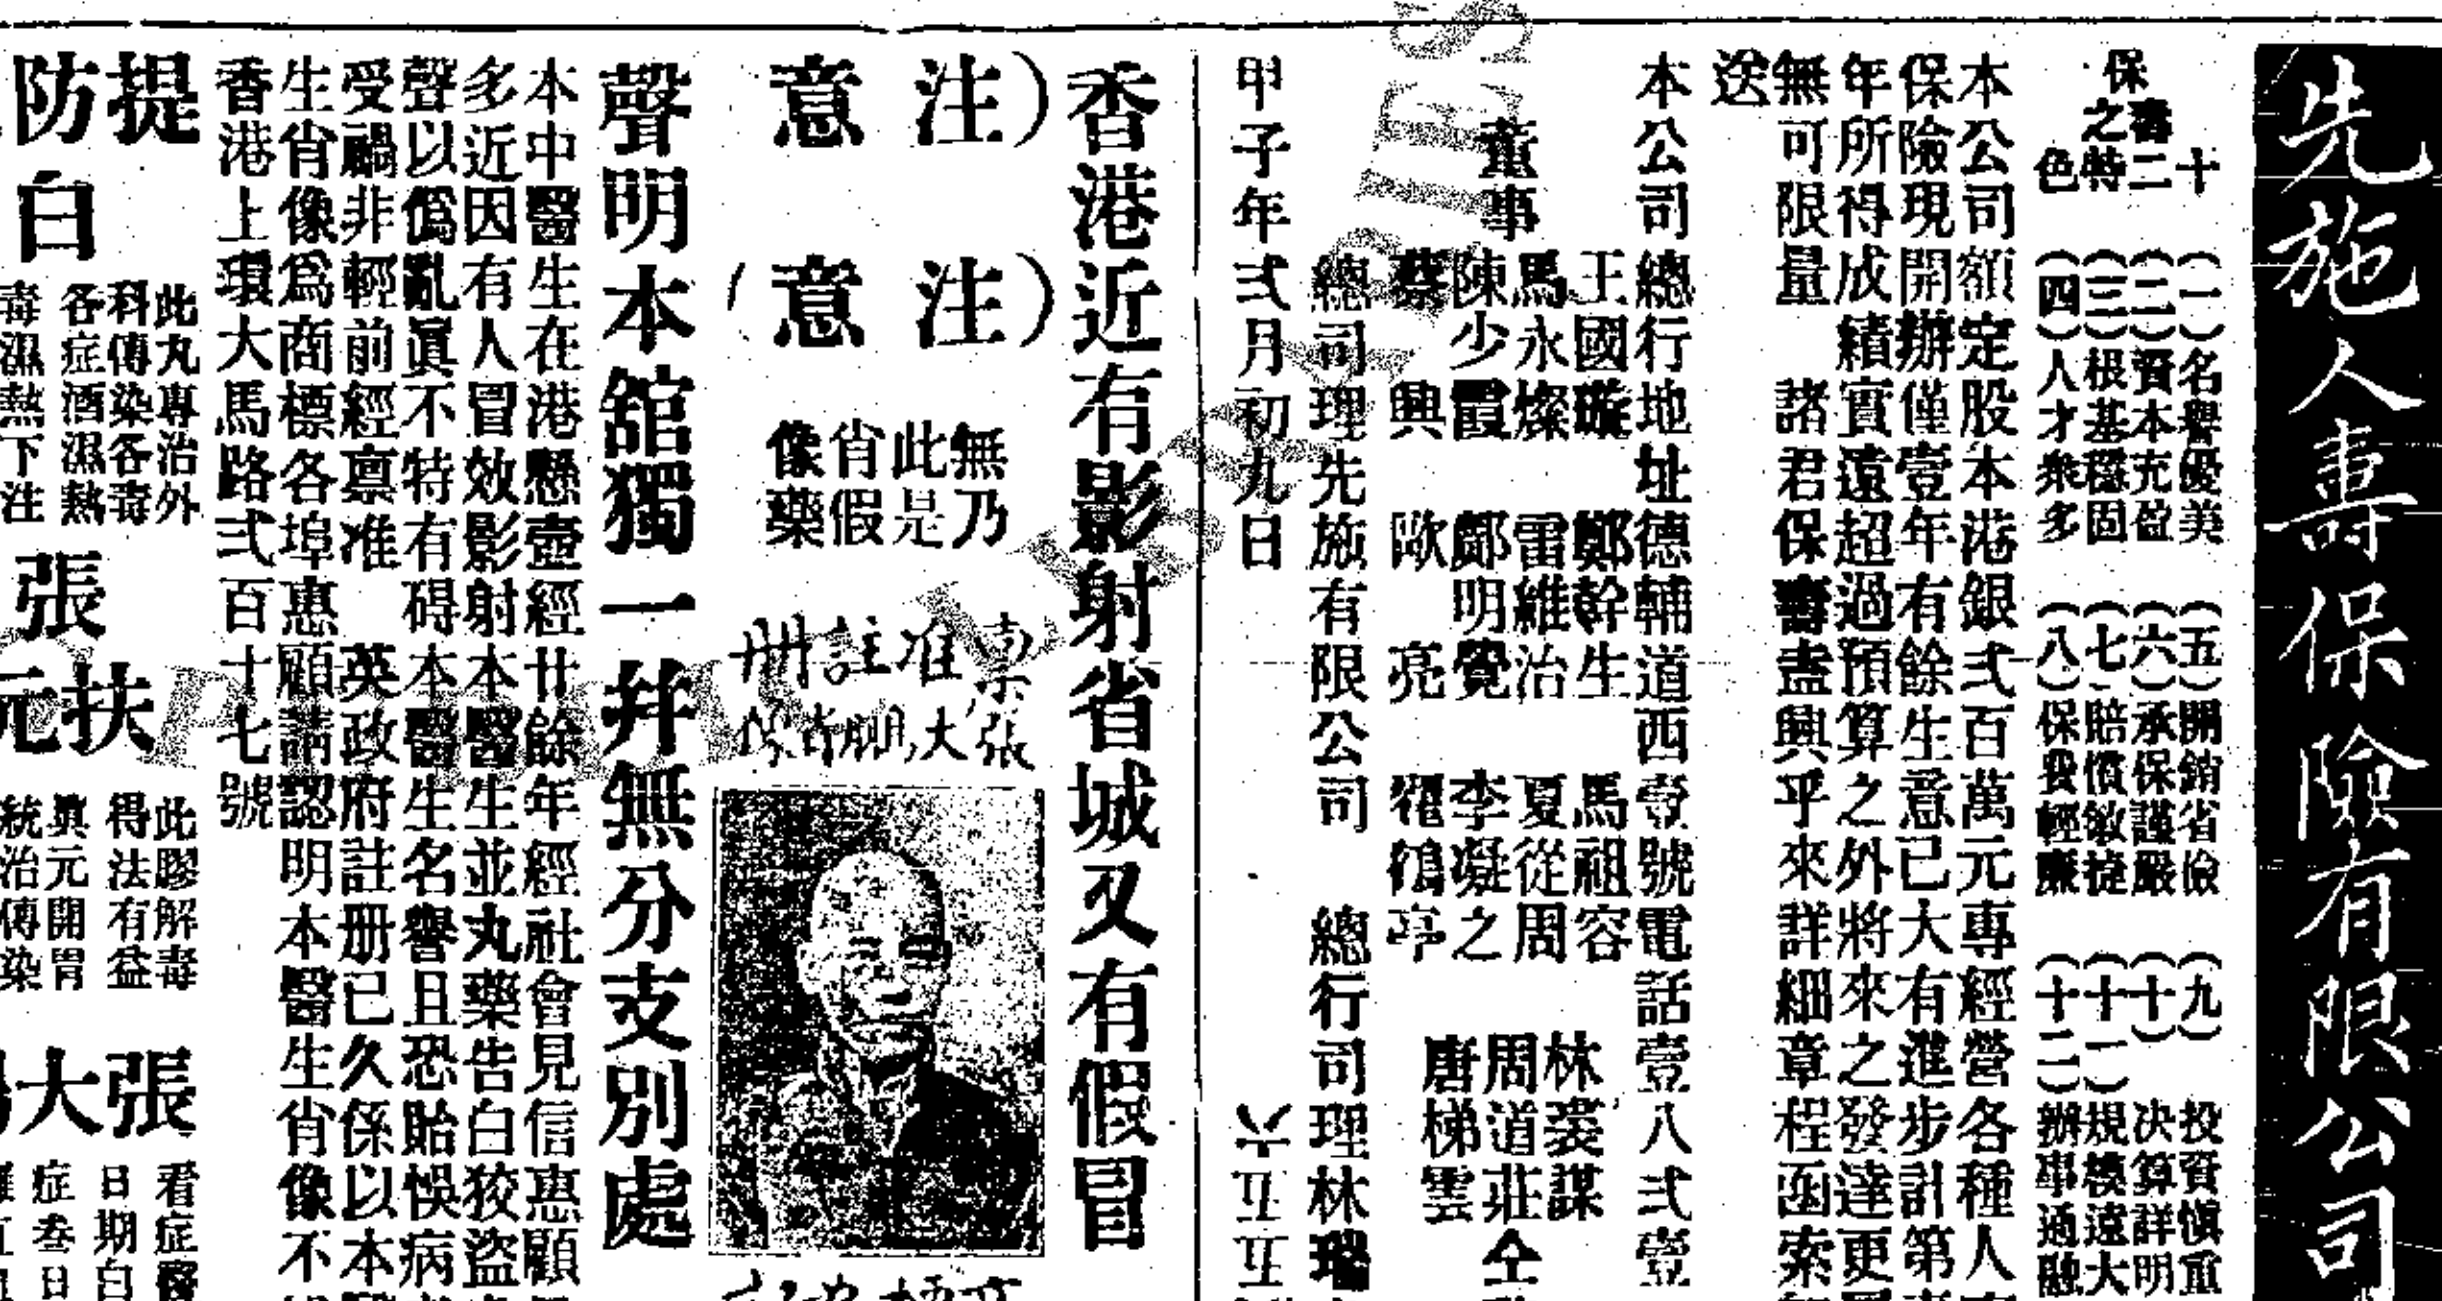 先施人壽保險有限公司
十二特色
保壽之
(一)名譽優美 (五)開銷省儉 (九)投資慎重
(二)資本充盈 (六)承保謹嚴 (十)决算詳明
(三)根基穩固 (七)賠償敏捷 (十一)規模遠大
(四)人才衆多 (八)保我輕廉 (十二)辦事通融
本公司額定股本港銀弍百萬元專經營各種人
保險現開辦僅壹年有餘生意已大有進步計第
年所得成績實遠超過預算之外將來之發達更
無可限量 諸君保壽盍興乎來詳細章程函索
送
本公司總行地址德輔道西壹號電話壹八弍壹
王國璇 鄭幹生 馬祖容 林裘謀
董事 馬永燦 雷維治 夏從周 周道莊 仝
陳少霞 鄺明覺 李凝之 唐梯雲
蔡興 歐亮 羅鶴亭
總司理先施有限公司 總行司理林瑞
甲子年弍月初九日
香港近有影射省城又有假冒
(注意
(注意)
無乃此是肖假像藥
稟准註册
張大賜肖像
聲明本舘獨一并無分支別處
本中醫生在港懸壺經廿餘年經社會見信惠顧
多近因有人冒效影射本醫生並丸藥告白狡盜
聲以僞亂眞不特有碍本醫生名譽且恐貽悞病
受禍非輕前經禀准 英政府註册已久係以本
生肖像爲商標各埠惠顧請認明本醫生肖像不
香港上環大馬路弍百十七號
提防
白
此丸專治外
科傳染各毒
各症酒濕熱
毒濕熱下注
張
扶元
此膠解毒
得法有益
眞元開胃
統治傳染
張大
看症
日期白
症叁日